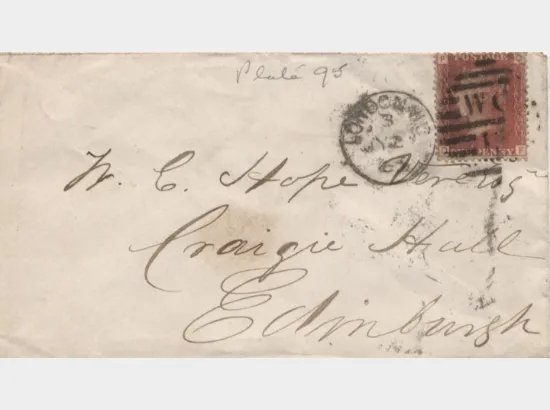 Plate 95
POSTAGE
PENNY
LONDON W.C
3
12
WC
W. C. Hope Vere Esq
Craigie Hall
Edinburgh